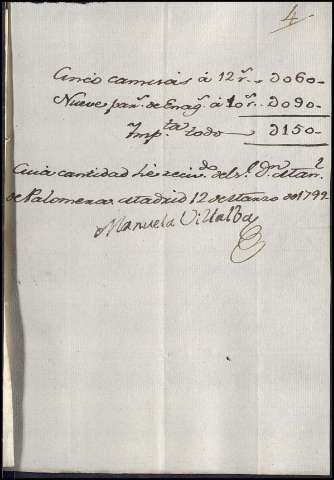 4
Cinco camisas á 12 r.ˢ - D060-
Nueve par.ˢ de Enag.ˢ á 10 r.ˢ - D090-
Ymp.ᵗᵃ todo - D150-
Cuia cantidad hè reciv.ᵈᵒ del S.ʳ D.ⁿ Man.ˡ
de Palomeras Madrid 12 de Marzo de 1799
Manuela Villalba